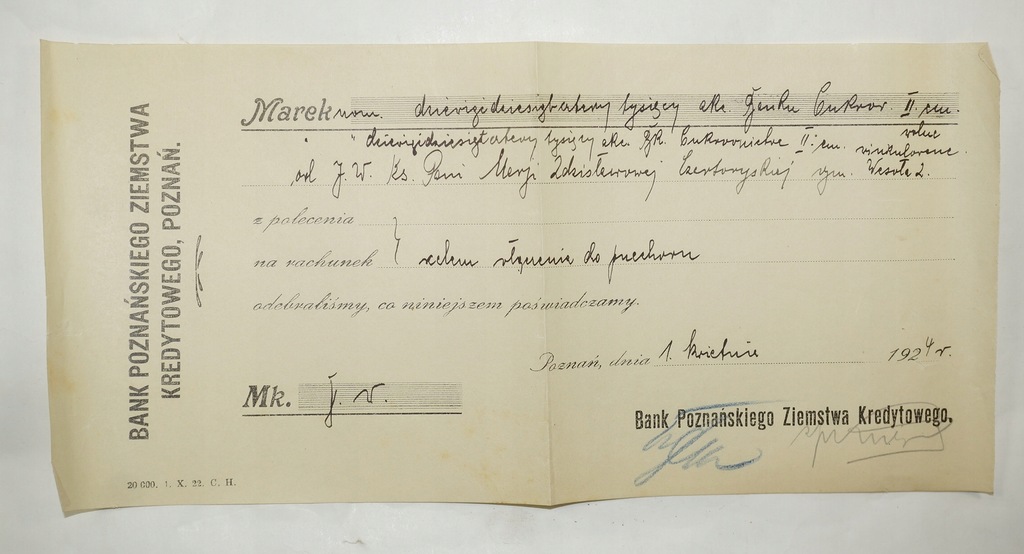 BANK POZNAŃSKIEGO ZIEMSTWA
KREDYTOWEGO, POZNAŃ.
Marek nom. tysięcy akc. Banku Cukrow. II. em.
" " tysięcy akc. Bk. Cukrownictwa II. em.
wolne
od J. W. Ks. Pani Marji Zdzisławowej Czartoryskiej wym. Wesoła 2.
z polecenia
na rachunek } celem włączenia do
odebraliśmy, co niniejszem poświadczamy.
Poznań, dnia 1. kwietnia 1924 r.
Mk. j. w.
Bank Poznańskiego Ziemstwa Kredytowego.
20 000. 1. X. 22. C. H.